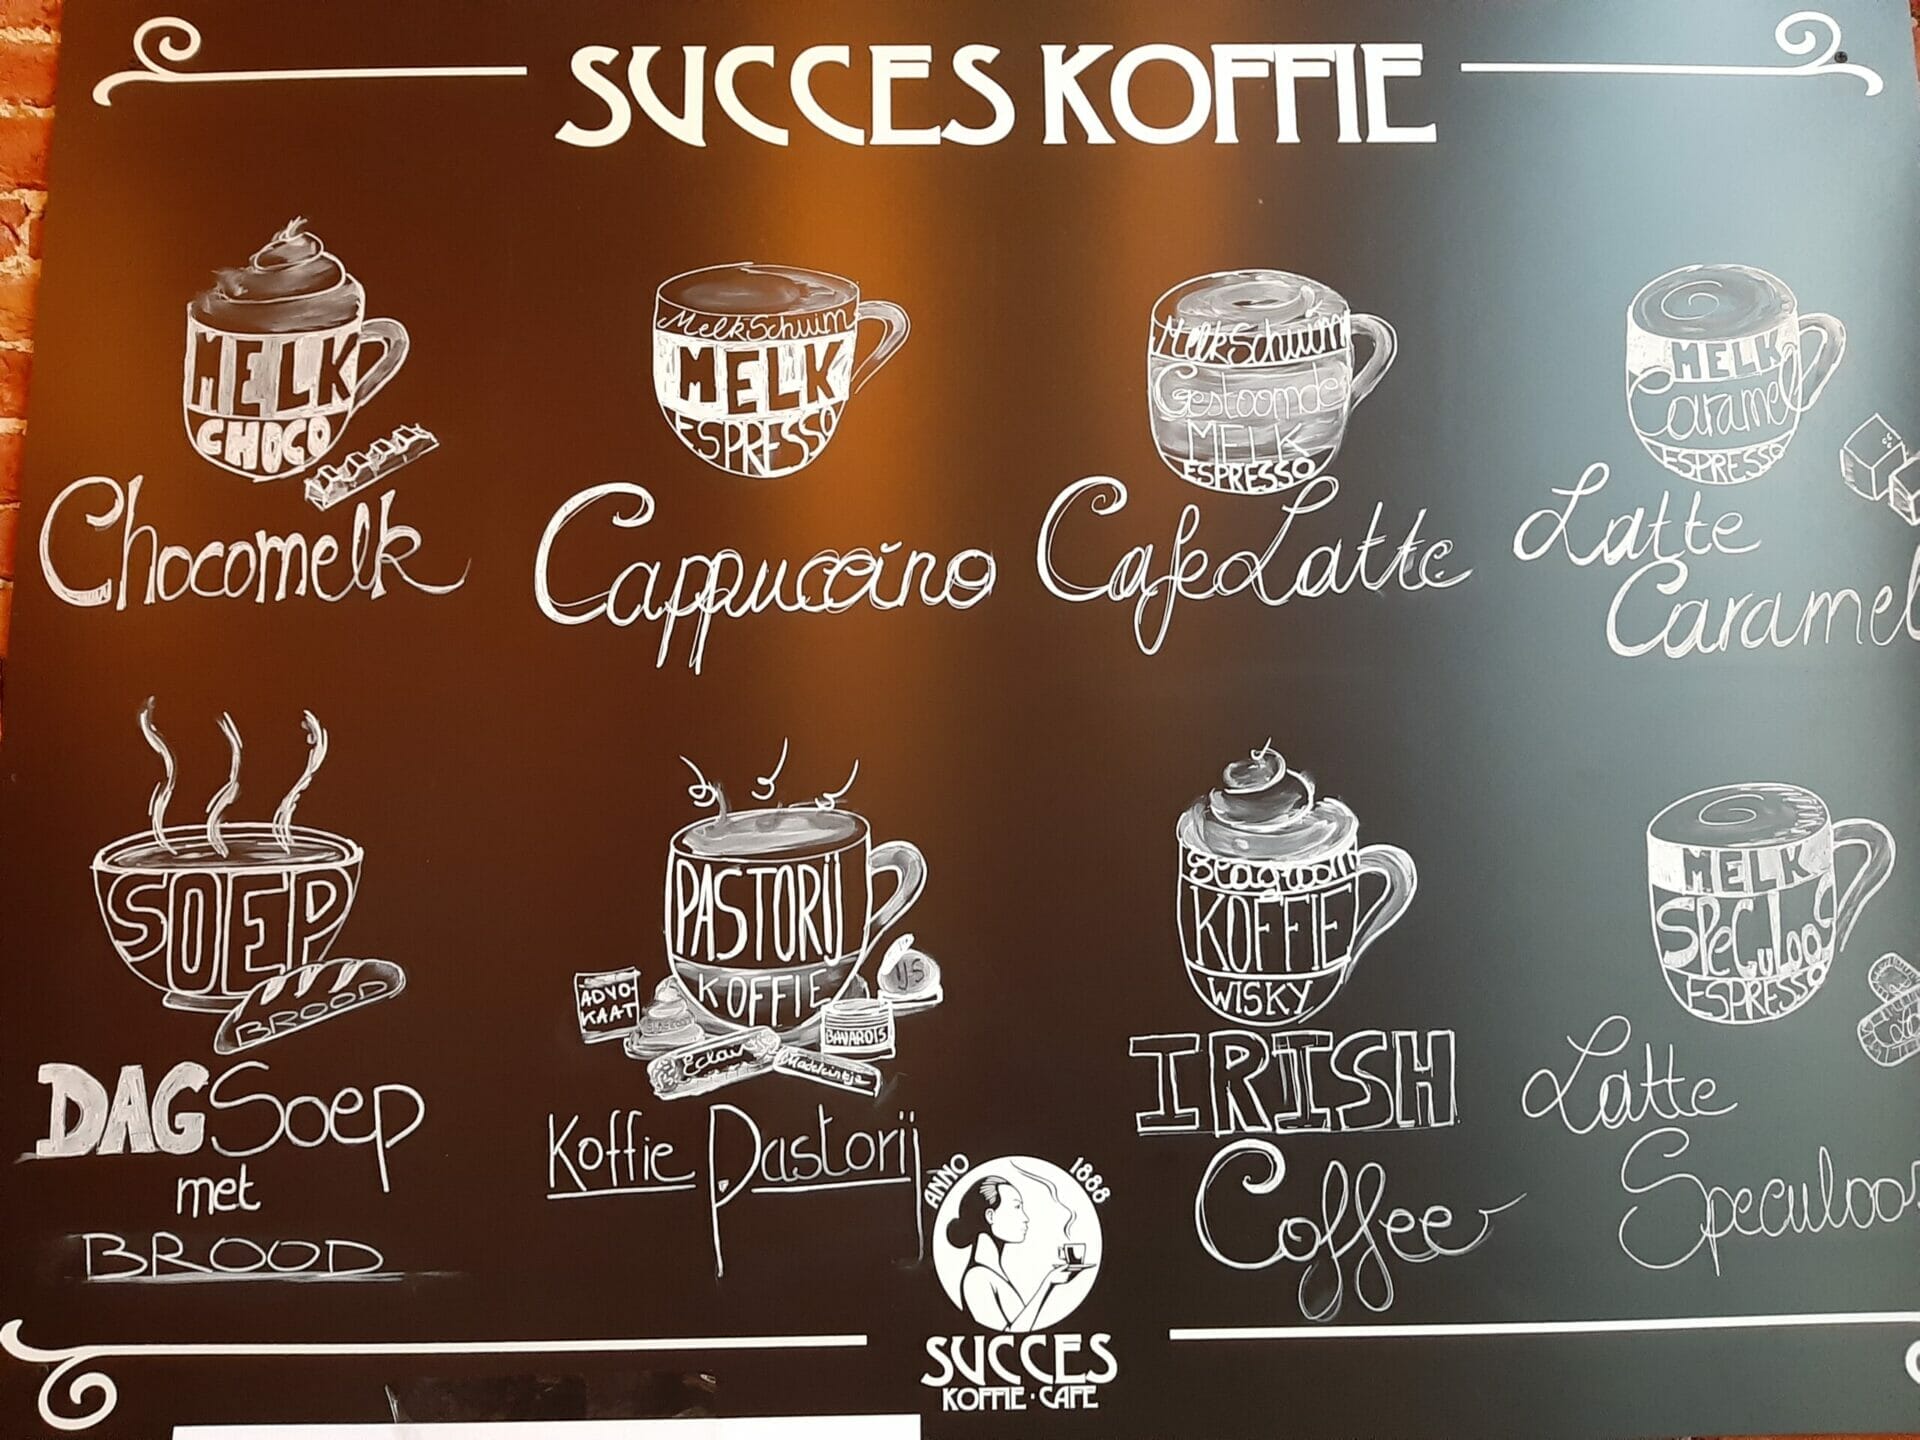 SUCCES KOFFIE
MELK
CHOCO
Chocomelk
MelkSchuim
MELK
ESPRESSO
Cappuccino
MelkSchuim
Gestoomde
MELK
ESPRESSO
Cafe Latte
MELK
Caramel
ESPRESSO
Latte
Caramel
SOEP
BROOD
DAGSoep
met
BROOD
PASTORIJ
KOFFIE
ADVO-
KAAT
IJS
BAVAROIS
Eclair
Madeleintje
Koffie Pastorij
Slagroom
KOFFIE
WISKY
IRISH
Coffee
MELK
SPECULOO
ESPRESSO
Latte
Speculoos
ANNO 1888
SUCCES
KOFFIE · CAFE